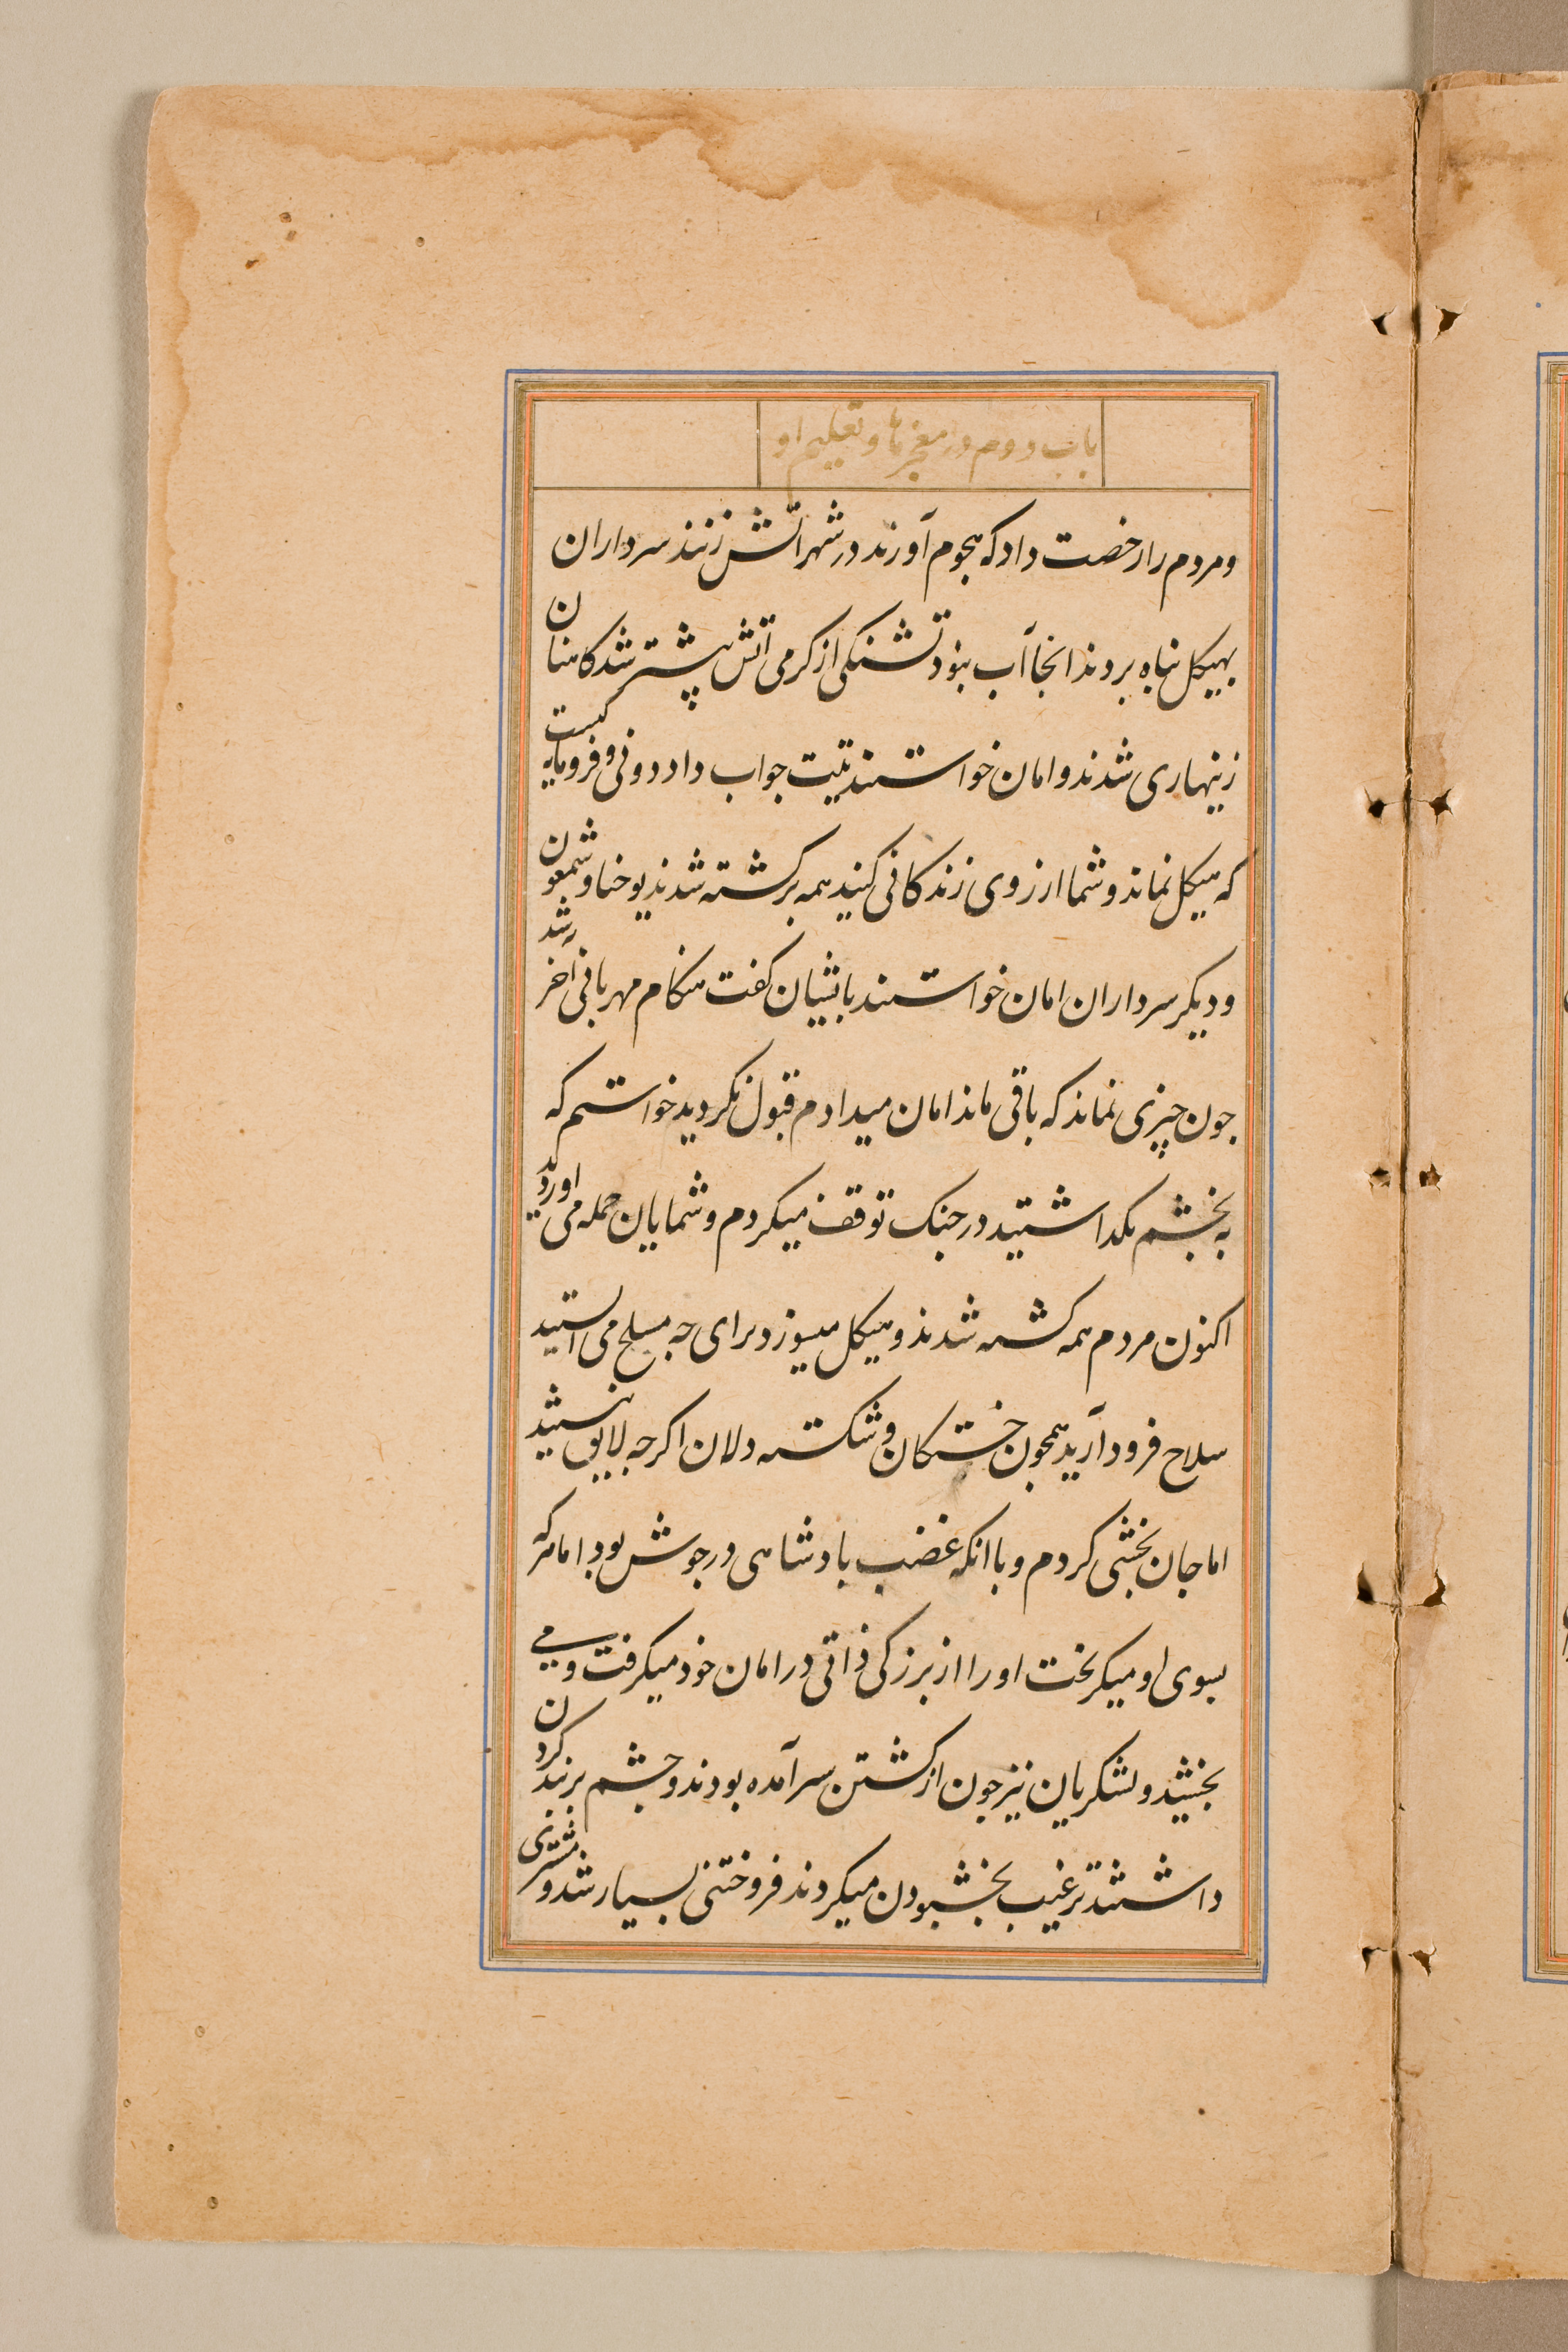 باب دوم در معجزها و تعلیم او
و مردم را رخصت داد که هجوم آورند در شهر اتش زنند سرداران
بهیکل پناه بردند انجا آب نبود تشنکی از کرمی اتش پیشتر شد کاهنان
زینهاری شدند و امان خواستند تیت جواب داد دونی و فرومایه کیست
که هیکل نماند و شما ارزوی زندکانی کنید همه بر کشته شدند یوحنا و شمعون
و دیکر سرداران امان خواستند باتیان کفت هنکام مهربانی آخر شد
جون چیزی نماند که باقی ماند امان میدادم قبول نکردید خواستم که
به بخشم نکداشتید در جنک توقف میکردم و شمایان حمله می اوردید
اکنون مردم همه کشته شدند و هیکل میسوزد برای جه مسلح می استید
سلاح فرود آرید همجون خستکان و شکسته دلان اکرجه لایق نیستید
اما جان بخشی کردم و با انکه غضب بادشاهی در جوش بود اما هرکه
بسوی او میکریخت او را از بزرکی ذاتی در امان خود میکرفت و می
بخشید و لشکریان نیز جون از کشتن سرآمده بودند و جشم بر بند کردن
داشتند ترغیب بخشودن میکردند فروختنی بسیار شد و مشتری